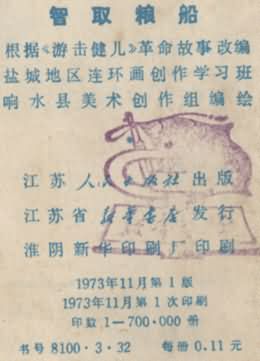 智取粮船
根据《游击健儿》革命故事改编
盐城地区连环画创作学习班
响水县美术创作组编绘
江苏人民出版社出版
江苏省新华书店发行
淮阴新华印刷厂印刷
1973年11月第1版
1973年11月第1次印刷
印数1—700·000册
书号8100·3·32 每册0.11元